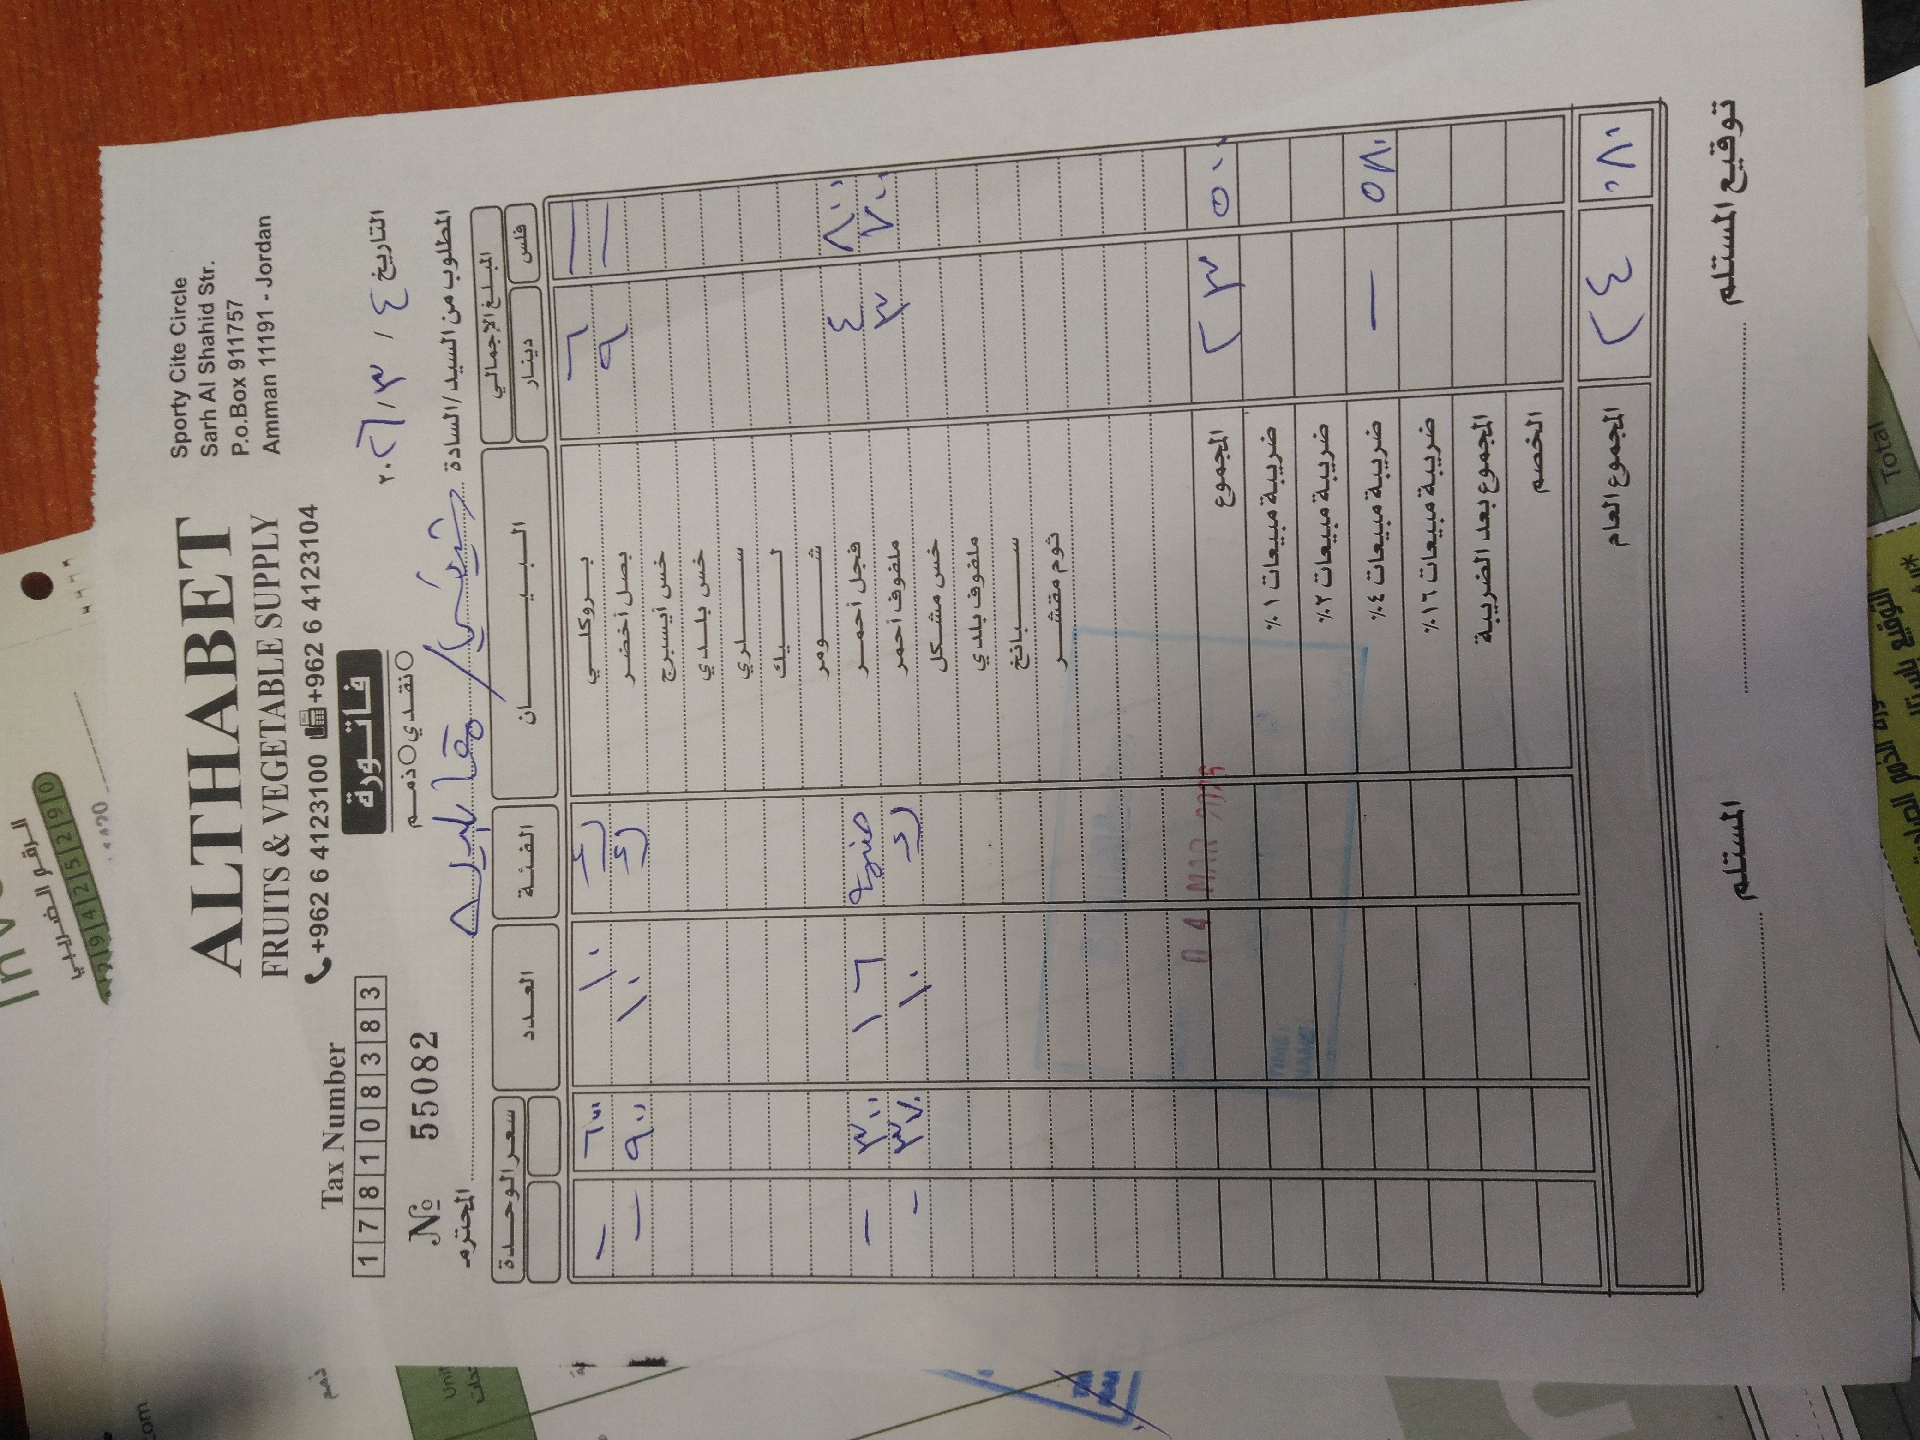 ALTHABET
FRUITS & VEGETABLE SUPPLY
+962 6 4123100 +962 6 4123104
Sporty Cite Circle
Sarh Al Shahid Str.
P.o.Box 911757
Amman 11191 - Jordan
Tax Number
1 7 8 1 0 8 3 8 3
فاتورة
نقدي ذمم
№ 55082
التاريخ ٤ / ٣ / ٢٠٢٦
المطلوب من السيد/السادة المحترم
المبلغ الإجمالي البيـــان الفئة العدد سعر الوحدة
فلس دينار
— ٦ بروكلـي ١٠ ٦٠٠ —
— ٩ بصل أخضر ١٠ ٩٠٠ —
خس آيسبرج
خس بلدي
ســلري
لـيك
شــومر
٨٠٠ ٤ فجل أحمر ١٦ ٣٠٠ —
٧٠٠ ٣ ملفوف أحمر ١٠ ٣٧٠ —
خس مشكل
ملفوف بلدي
سـبانخ
ثوم مقشر
المجموع ٢٣ ٥٠٠
ضريبة مبيعات ١٪
ضريبة مبيعات ٢٪
ضريبة مبيعات ٤٪ — ٥٨٠
ضريبة مبيعات ١٦٪
المجموع بعد الضريبة
الخصم
المجموع العام ٢٤
توقيع المستلم المستلم
الرقم الضريبي
Total